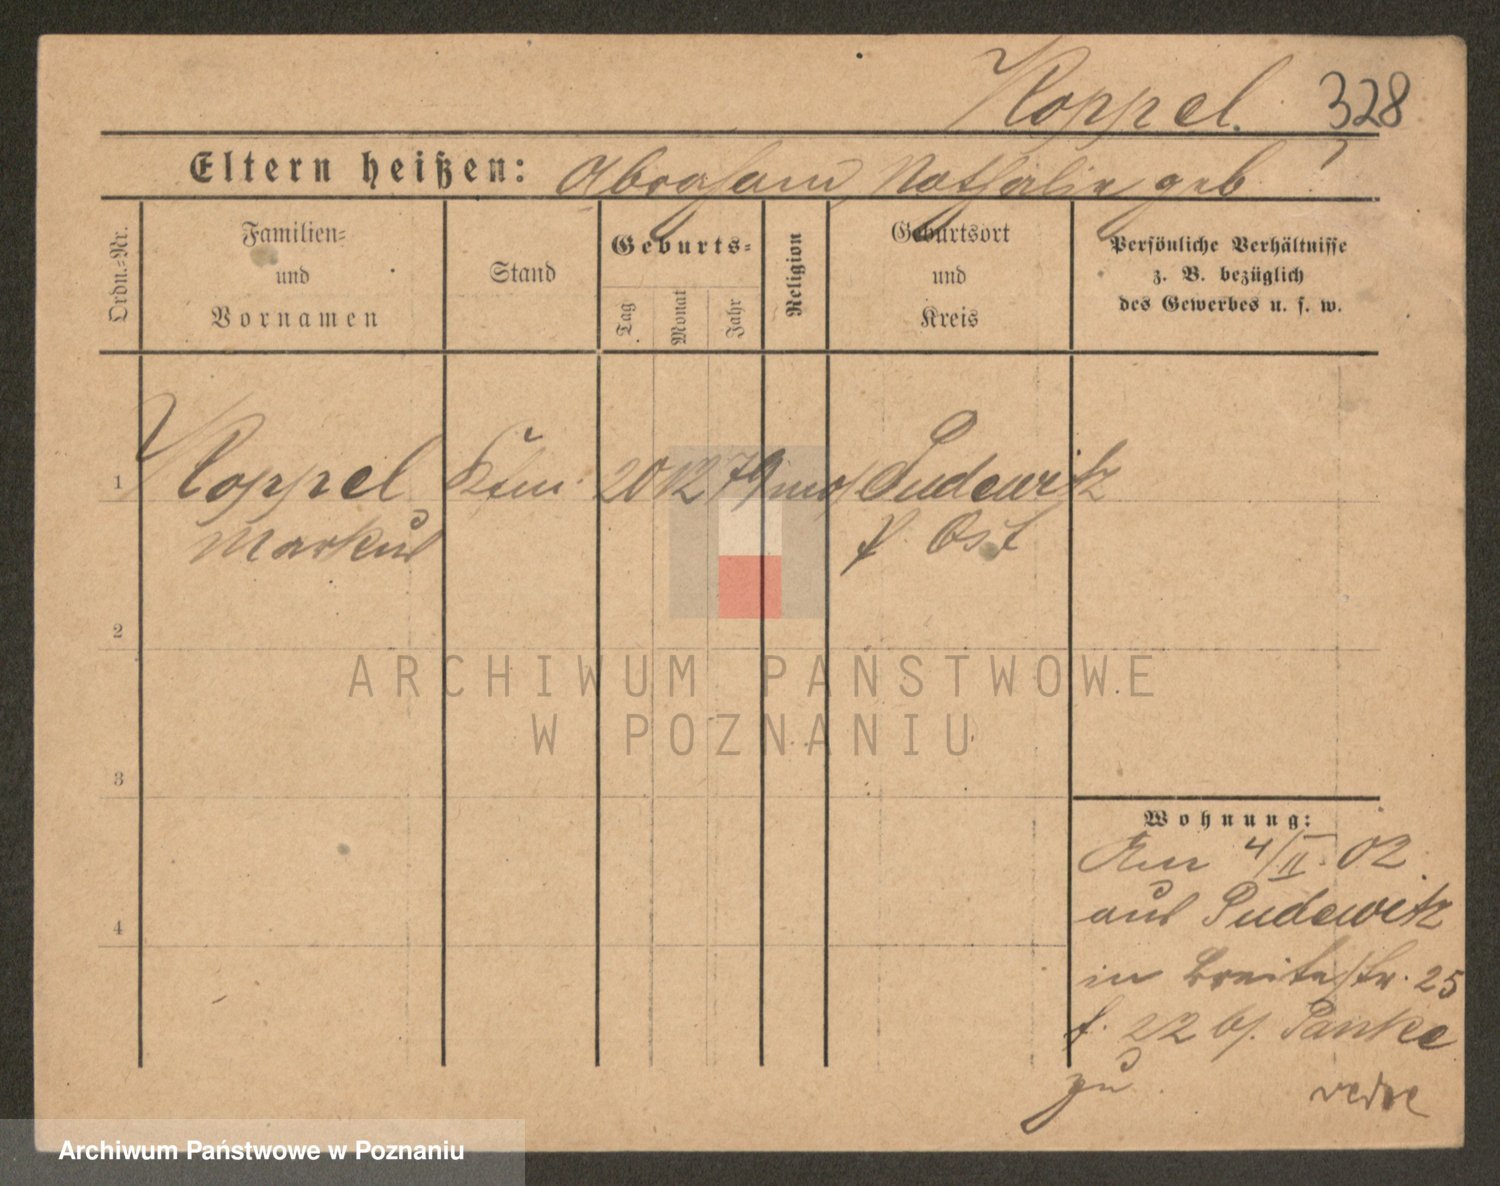 Koppel. 328
Eltern heißen: Abraham, Nathalie geb ?
Ordn.-Nr.
Familien- und Vornamen
Stand
Geburts-
Tag
Monat
Jahr
Religion
Geburtsort und Kreis
Persönliche Verhältnisse z. B. bezüglich des Gewerbes u. s. w.
1 Koppel Kfm. 20 12 79 mos Pudewitz
Markus K. Ost
2
3
4
Wohnung:
4/II. 02
aus Pudewitz
in Breitestr. 25
22 bei Panke
zu
ARCHIWUM PAŃSTWOWE
W POZNANIU
Archiwum Państwowe w Poznaniu